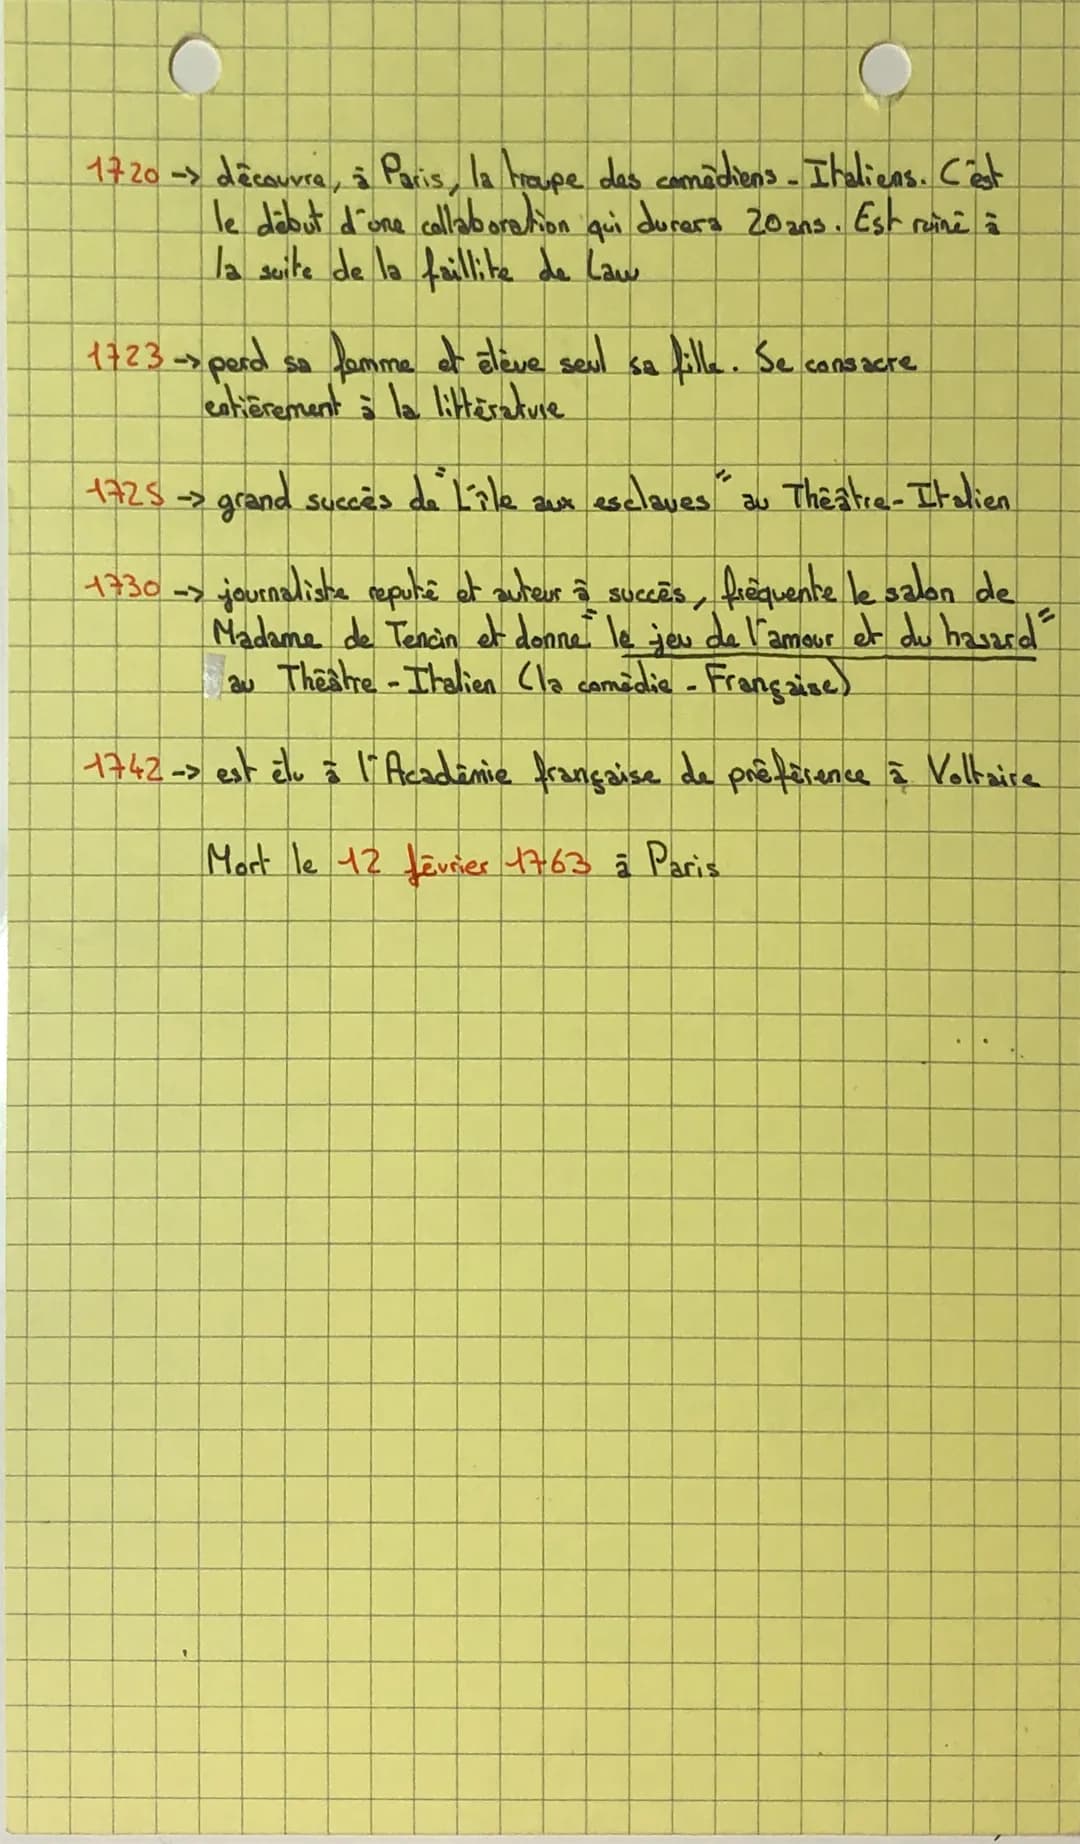 1720 -> découvre, à Paris, la troupe des comédiens - Italiens. C'est
le début d'une collaboration qui durera 20 ans. Est ruiné à
la suite de la faillite de Law
1723 -> perd sa femme et élève seul sa fille. Se consacre
entièrement à la littérature
1725 -> grand succès de "L'île aux esclaves" au Théâtre - Italien
1730 -> journaliste reputé et auteur à succès, fréquente le salon de
Madame de Tencin et donne "le jeu de l'amour et du hasard"
au Théâtre - Italien (la comédie - Française)
1742 -> est élu à l'Académie française de préférence à Voltaire
Mort le 12 février 1763 à Paris